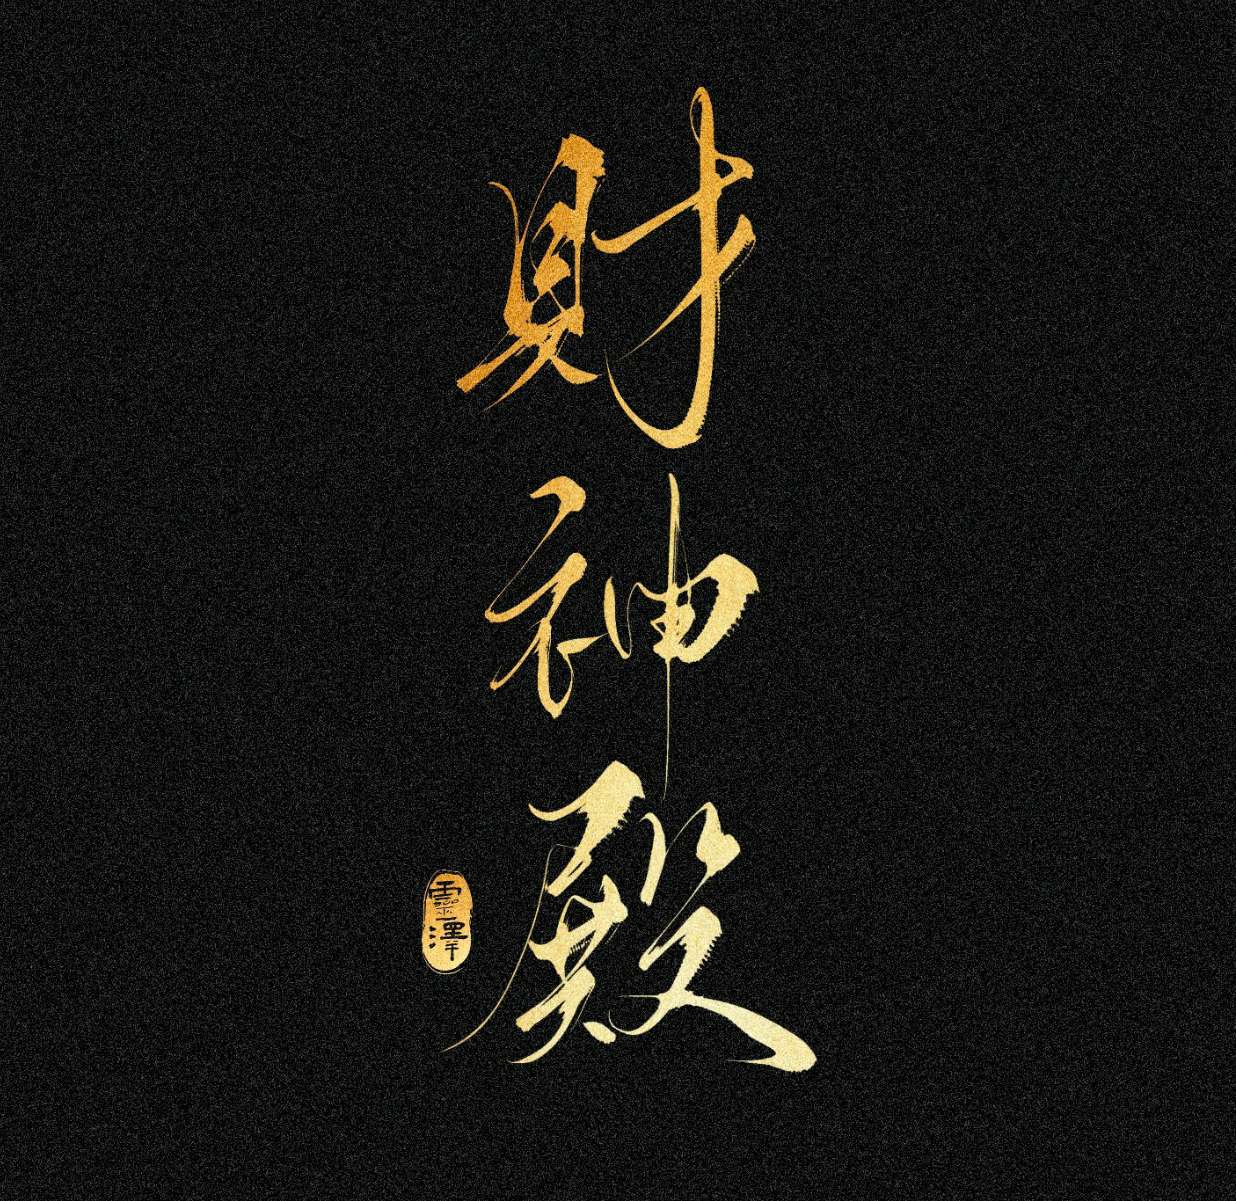 財神殿
靈澤